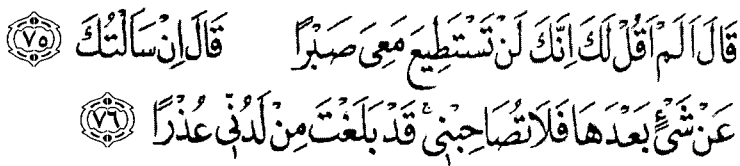 قَالَ اَلَمْ اَقُلْ لَكَ اِنَّكَ لَنْ تَسْتَطٖيعَ مَعِىَ صَبْرًا ﴿٧٥﴾ قَالَ اِنْ سَاَلْتُكَ
عَنْ شَیْءٍ بَعْدَهَا فَلَا تُصَاحِبْنٖى قَدْ بَلَغْتَ مِنْ لَدُنّٖى عُذْرًا ﴿٧٦﴾